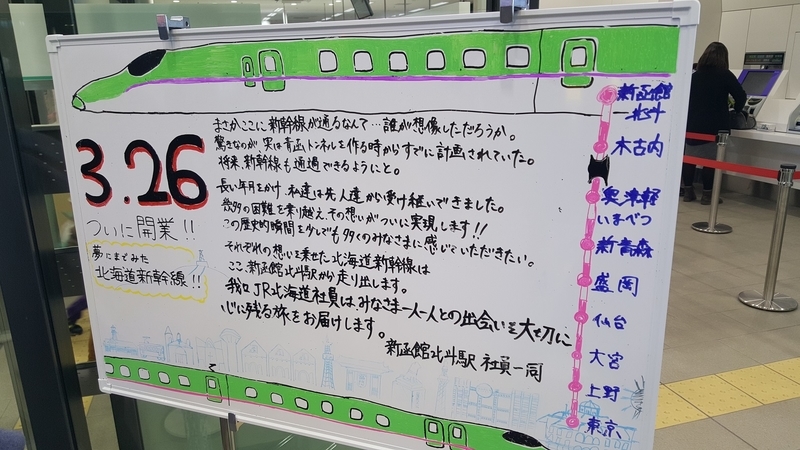 3.26
ついに開業!!
夢にまでみた
北海道新幹線!!
まさかここに新幹線が通るなんて…誰が想像しただろうか。
驚きなのが、実は青函トンネルを作る時からすでに計画されていた。
将来、新幹線も通過できるようにと。
長い年月をかけ、私達は先人達から受け継いできました。
幾多の困難を乗り越え、その想いがついに実現します!!
この歴史的瞬間を少しでも多くのみなさまに感じていただきたい。
それぞれの想いを乗せた北海道新幹線は
ここ、新函館北斗駅から走り出します。
我らJR北海道社員は、みなさま一人一人との出会いを大切に
心に残る旅をお届けします。
新函館北斗駅 社員一同
新函館
北斗
木古内
奥津軽
いまべつ
新青森
盛岡
仙台
大宮
上野
東京